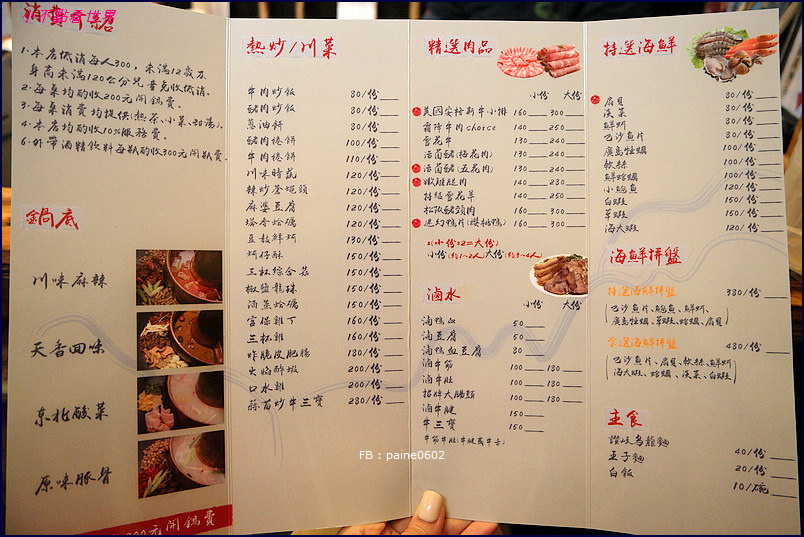 消費
1.本店低消每人300，未滿12歲及
身高未滿120公分兒童免收低消。
2.每桌均酌收200元開鍋費。
3.每桌消費均提供(熱茶、小菜、甜湯)。
4.本店均酌收10%服務費。
6.外帶酒精飲料每瓶酌收300元開瓶費。
鍋底
川味麻辣
天香回味
東北酸菜
原味豚骨
200元開鍋費
熱炒/川菜
牛肉炒飯 80/份
豬肉炒飯 80/份
蔥油餅 80/份
豬肉捲餅 100/份
牛肉捲餅 110/份
川味時蔬 120/份
辣炒 120/份
麻婆豆腐 120/份
塔香蛤蠣 120/份
豆鼓鮮蚵 130/份
蚵仔酥 150/份
三杯綜合菇 150/份
椒鹽龍珠 150/份
酒蒸蛤蠣 150/份
宮保雞丁 160/份
三杯雞 160/份
炸脆皮肥腸 180/份
火焰醉蝦 200/份
口水雞 200/份
蒜苗炒牛三寶 230/份
精選肉品
小份 大份
美國安格斯牛小排 160 300
霜降牛肉choice 140 250
雪花牛 130 240
活菌豬(梅花肉) 130 240
活菌豬(五花肉) 130 240
嫩雞腿肉 140 230
特級雪花羊 140 250
松阪豬頸肉 160 300
迷的鴨片(櫻桃鴨) 160 300
*(小份x2=大份)
小份(約1~2人)大份(約3~4人)
滷水
小份 大份
滷鴨血 50
滷豆腐 50
滷鴨血豆腐 80
滷牛筋 100 130
滷牛肚 100 130
招牌大腸頭 100 130
滷牛腱 150
牛三寶 150
牛筋牛肚(牛腱或牛舌)
特選海鮮
扇貝 80/份
淡菜 80/份
鮮蚵 80/份
巴沙魚片 80/份
廣島牡蠣 100/份
軟絲 100/份
鮮蛤蠣 100/份
小鮑魚 120/份
白蝦 150/份
草蝦 150/份
海大蝦 120/份
海鮮拼盤
特選海鮮拼盤 380/份
(巴沙魚片、鮑魚、鮮蚵、
廣島牡蠣、草蝦、蛤蠣、扇貝)
至選海鮮拼盤 480/份
(巴沙魚片、扇貝、軟絲、鮮蚵
海大蝦、蛤蠣、淡菜、白蝦)
主食
讚岐烏龍麵 40/份
王子麵 20/份
白飯 10/碗
FB : paine0602